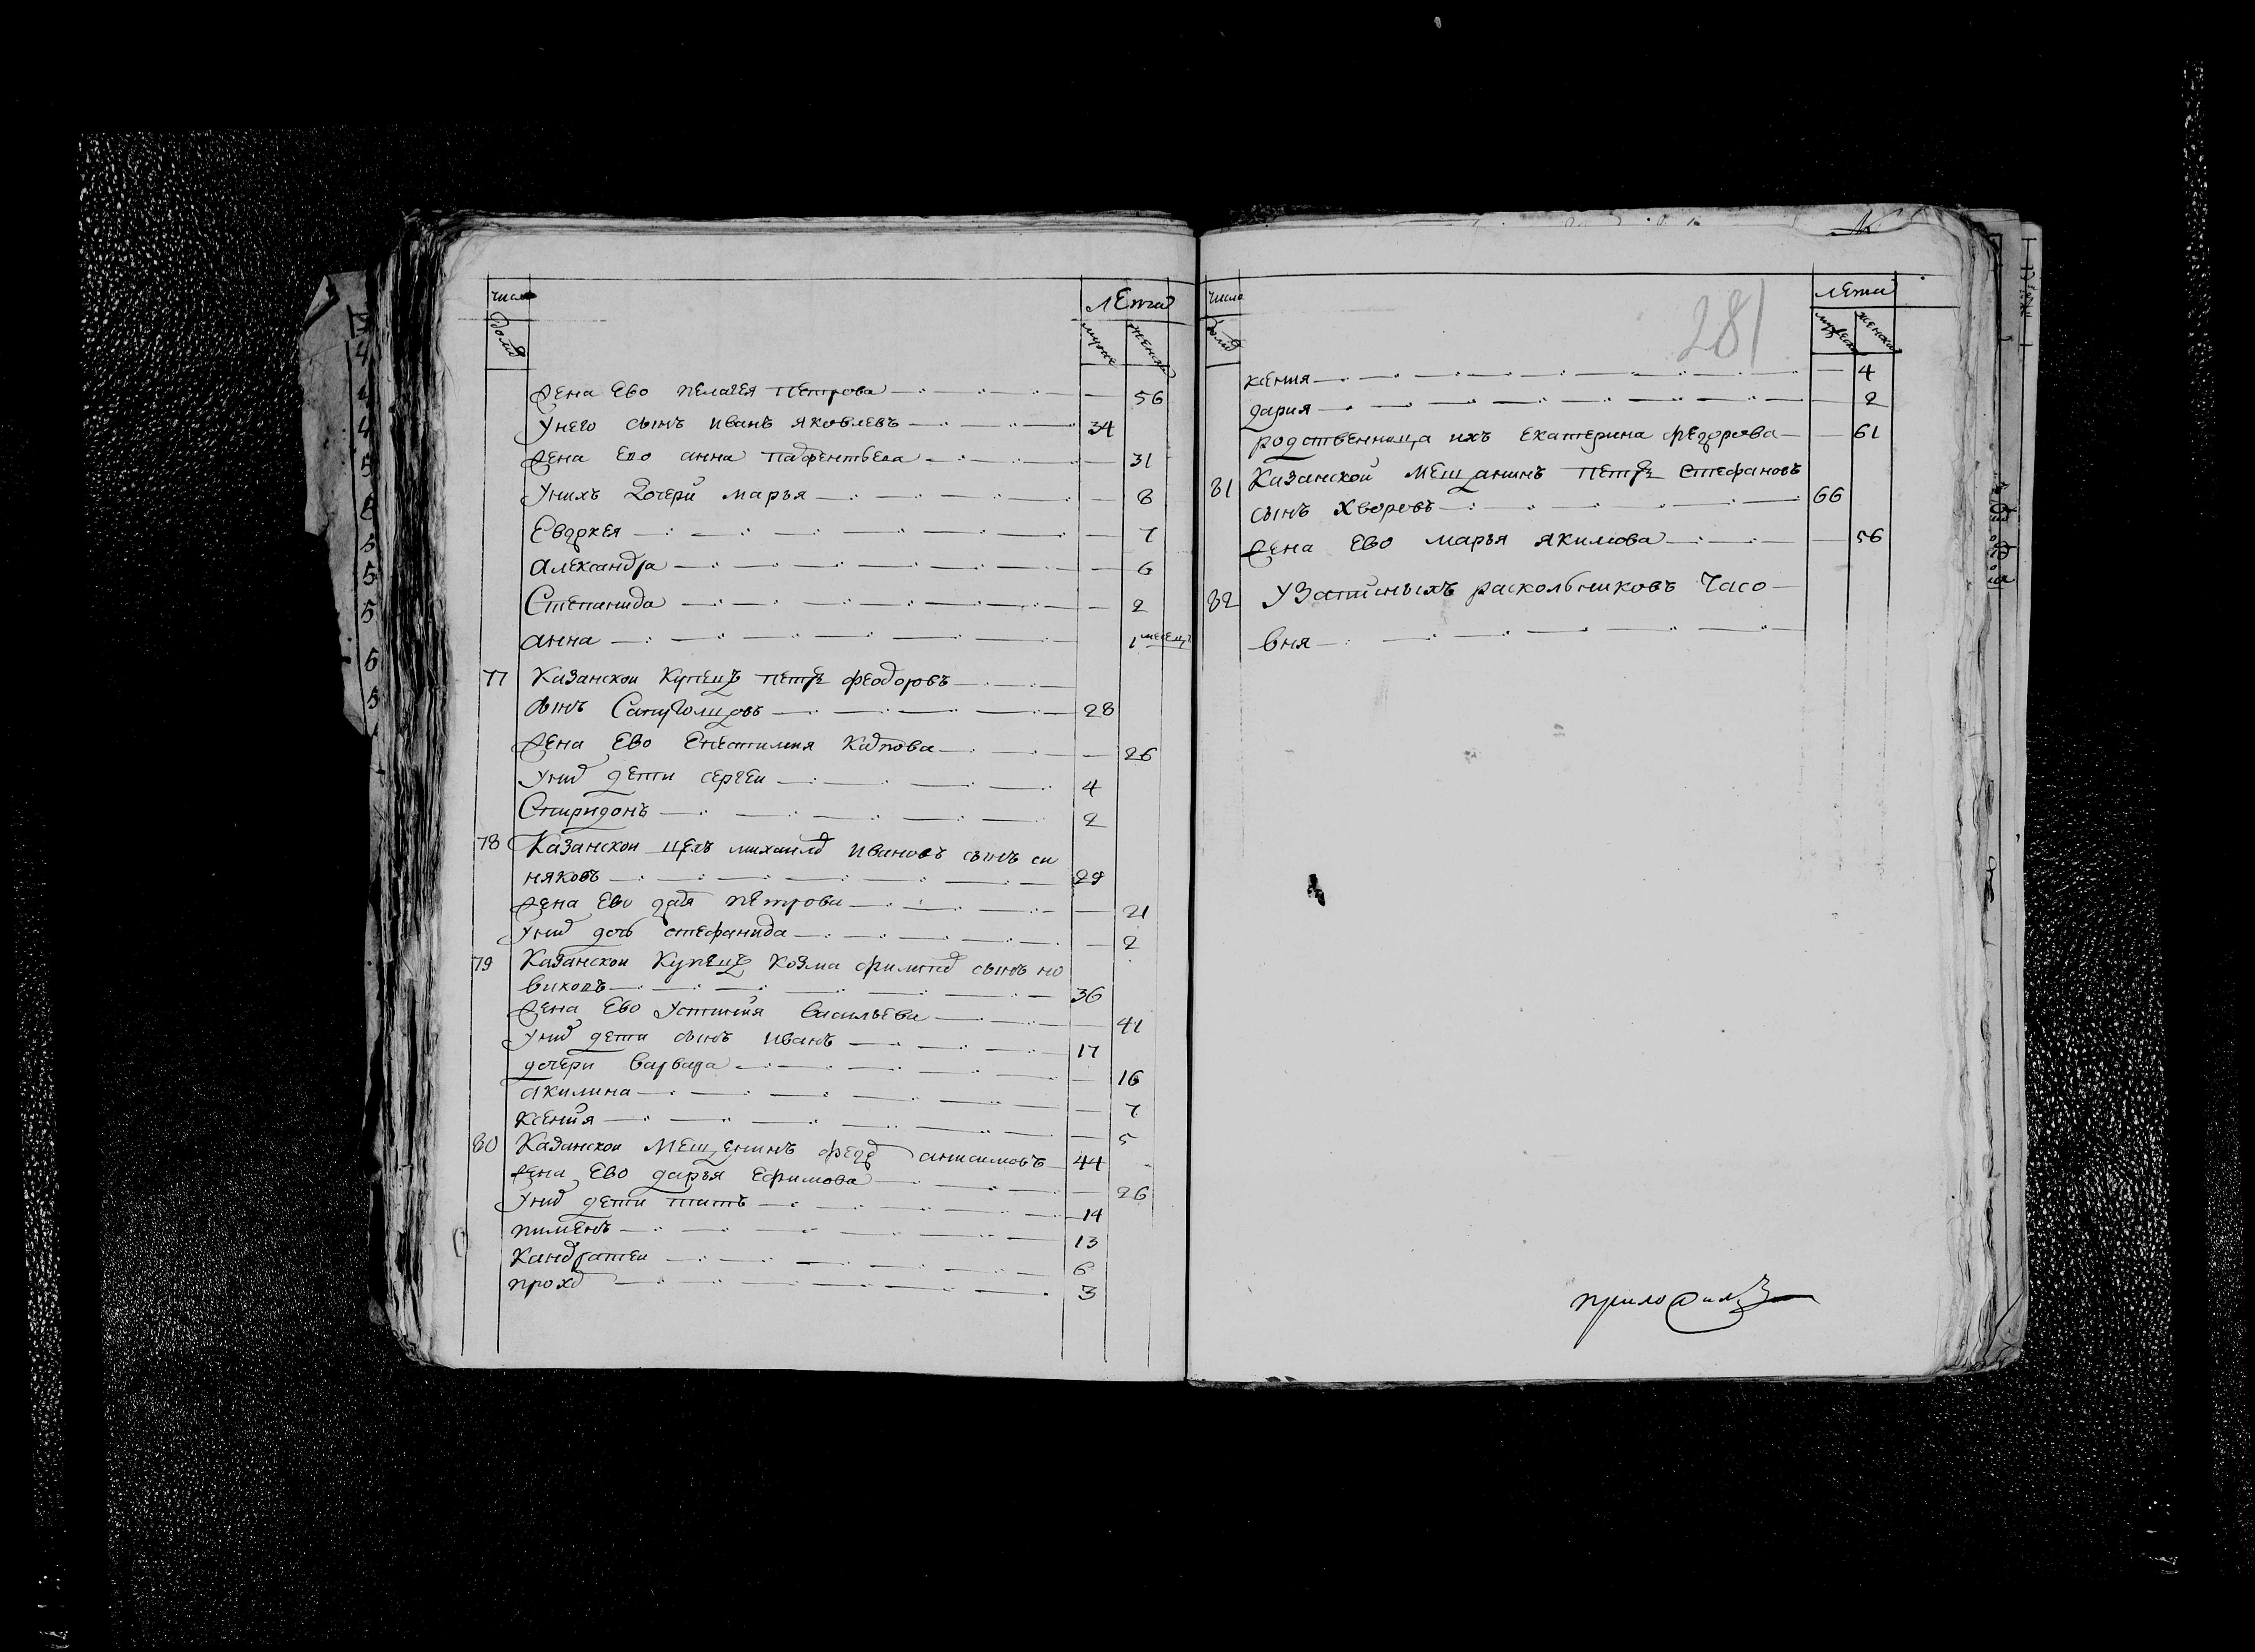 числ
домо
лета
мужес
женск
жена ево пелагея петрова 56
унего сынъ иванъ яковлевъ 34
жена ево анна парфентьева 31
унихъ дочери марья 8
Евдркея 7
александра 6
Степанида 2
анна 1 месецъ
77 Казанскои купецъ петръ феодоровъ
сынъ 28
жена ево Епестимия карпова 26
уних дети сергеи 4
Спиридонъ 2
78 Казанскои цехъ михаило ивановъ сынъ си
няковъ 29
жена ево даря петрова 21
уних дочь стефанида 2
79 Казанскои купецъ козма филипов сынъ но
виковъ 36
жена ево устиния васильева 41
уних дети сынъ иванъ 17
дочери варвара 16
акилина 7
ксения 5
80 Казанскои мещенинъ федр анисимовъ 44
жена ево дарья ефимова 26
уних дети титъ 14
пименъ 13
Кандратеи 6
прохо 3
числа
домо
281
лета
мужеска
женска
ксения 4
дария 2
родственница ихъ екатерина федорова 61
81 Казанской мещанинъ петръ стефановъ
сынъ хворовъ 66
жена ево марья якимова 56
82 узаписныхъ раскольниковъ часо
вня
приложилъ